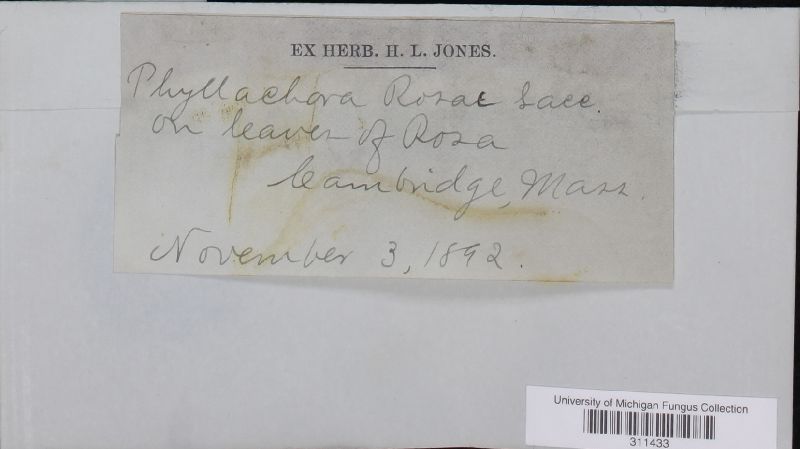 EX HERB. H. L. JONES.
Phyllachora Rosae Sacc.
on leaves of Rosa
Cambridge, Mass.
November 3, 1892.
University of Michigan Fungus Collection
311433